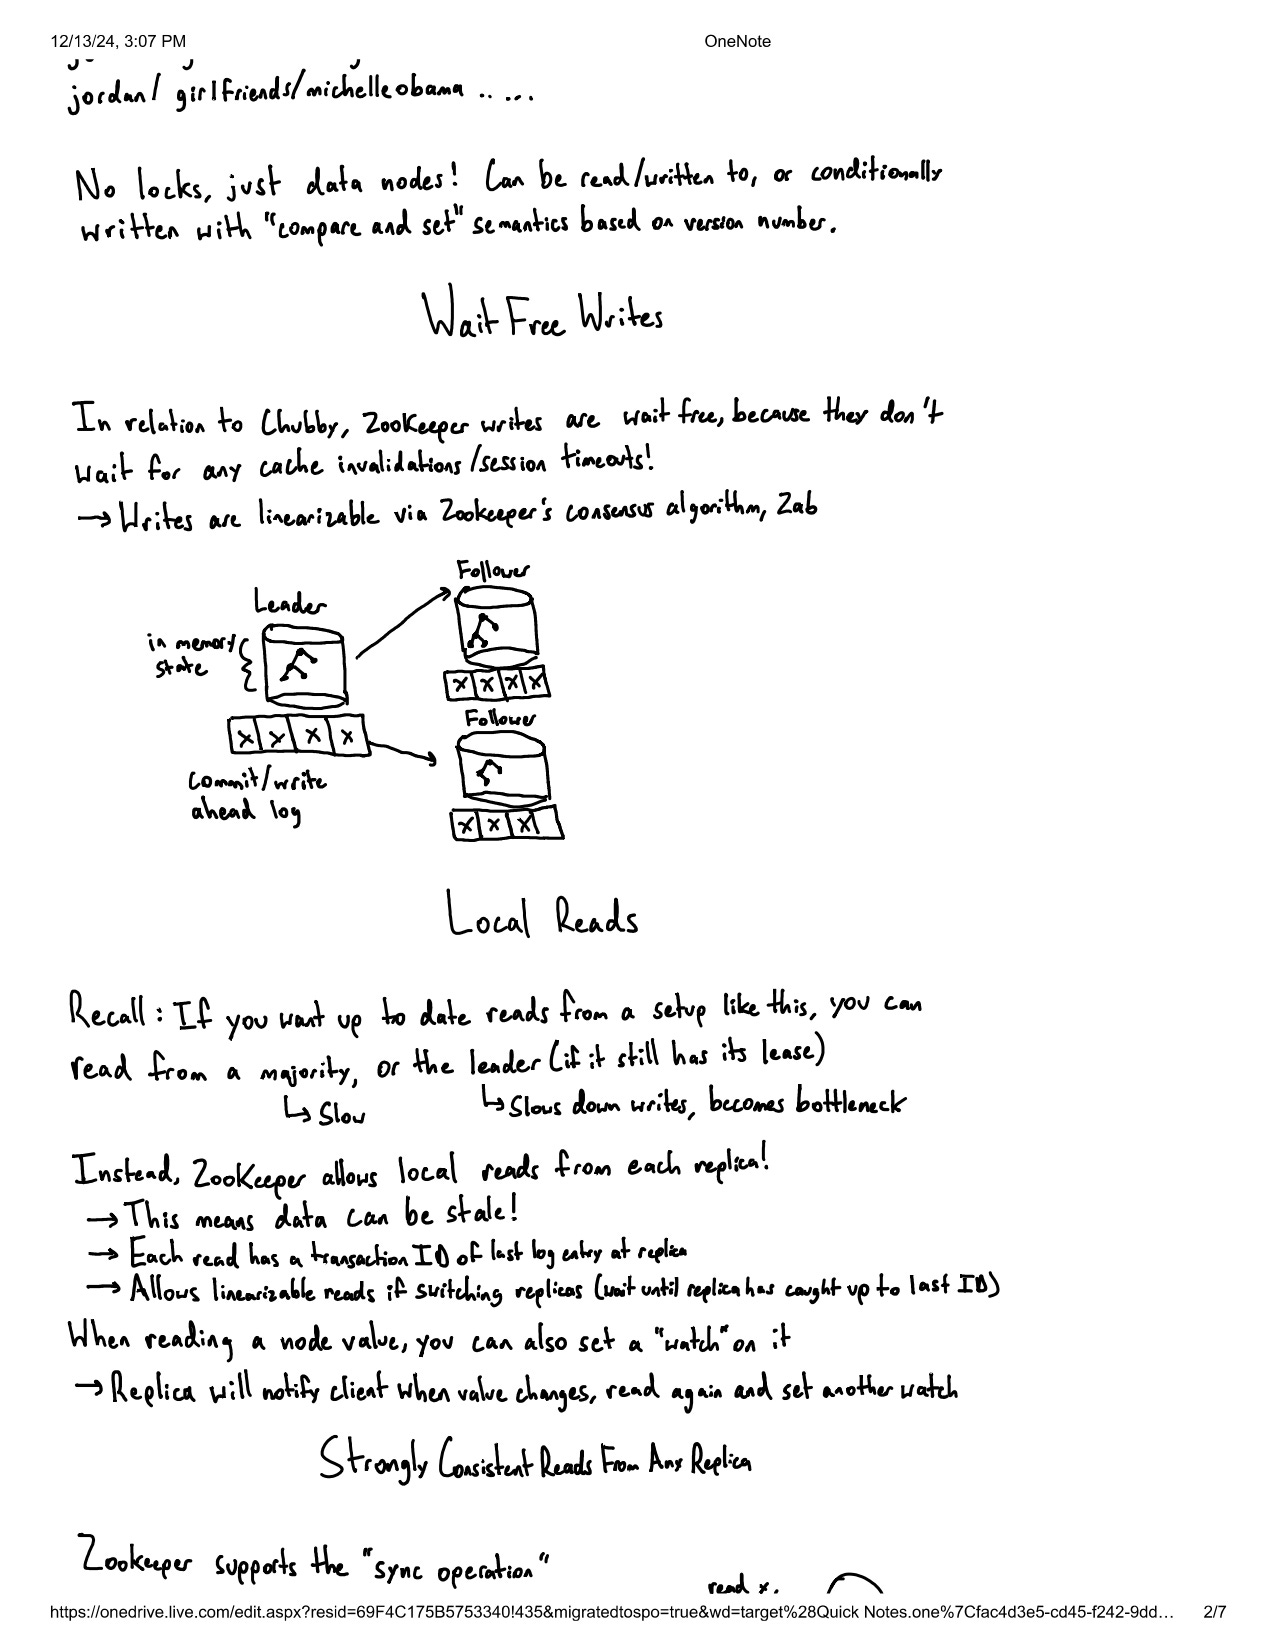 12/13/24, 3:07 PM
OneNote
jordan/ girlfriends/michelleobama .. ...
No locks, just data nodes! Can be read/written to, or conditionally
written with "compare and set" semantics based on version number.
Wait Free Writes
In relation to Chubby, ZooKeeper writes are wait free, because they don't
wait for any cache invalidations/session timeouts!
→ Writes are linearizable via Zookeeper's consensus algorithm, Zab
Follower
Leader
in memory
state
x x x x
Follower
x x x x
commit/write
ahead log
x x x
Local Reads
Recall: If you want up to date reads from a setup like this, you can
read from a majority, or the leader (if it still has its lease)
↳ Slow
↳ Slows down writes, becomes bottleneck
Instead, ZooKeeper allows local reads from each replica!
→ This means data can be stale!
→ Each read has a transaction ID of last log entry at replica
→ Allows linearizable reads if switching replicas (wait until replica has caught up to last ID)
When reading a node value, you can also set a "watch" on it
→ Replica will notify client when value changes, read again and set another watch
Strongly Consistent Reads From Any Replica
Zookeeper supports the "sync operation"
read x.
https://onedrive.live.com/edit.aspx?resid=69F4C175B5753340!435&migratedtospo=true&wd=target%28Quick Notes.one%7Cfac4d3e5-cd45-f242-9dd…
2/7